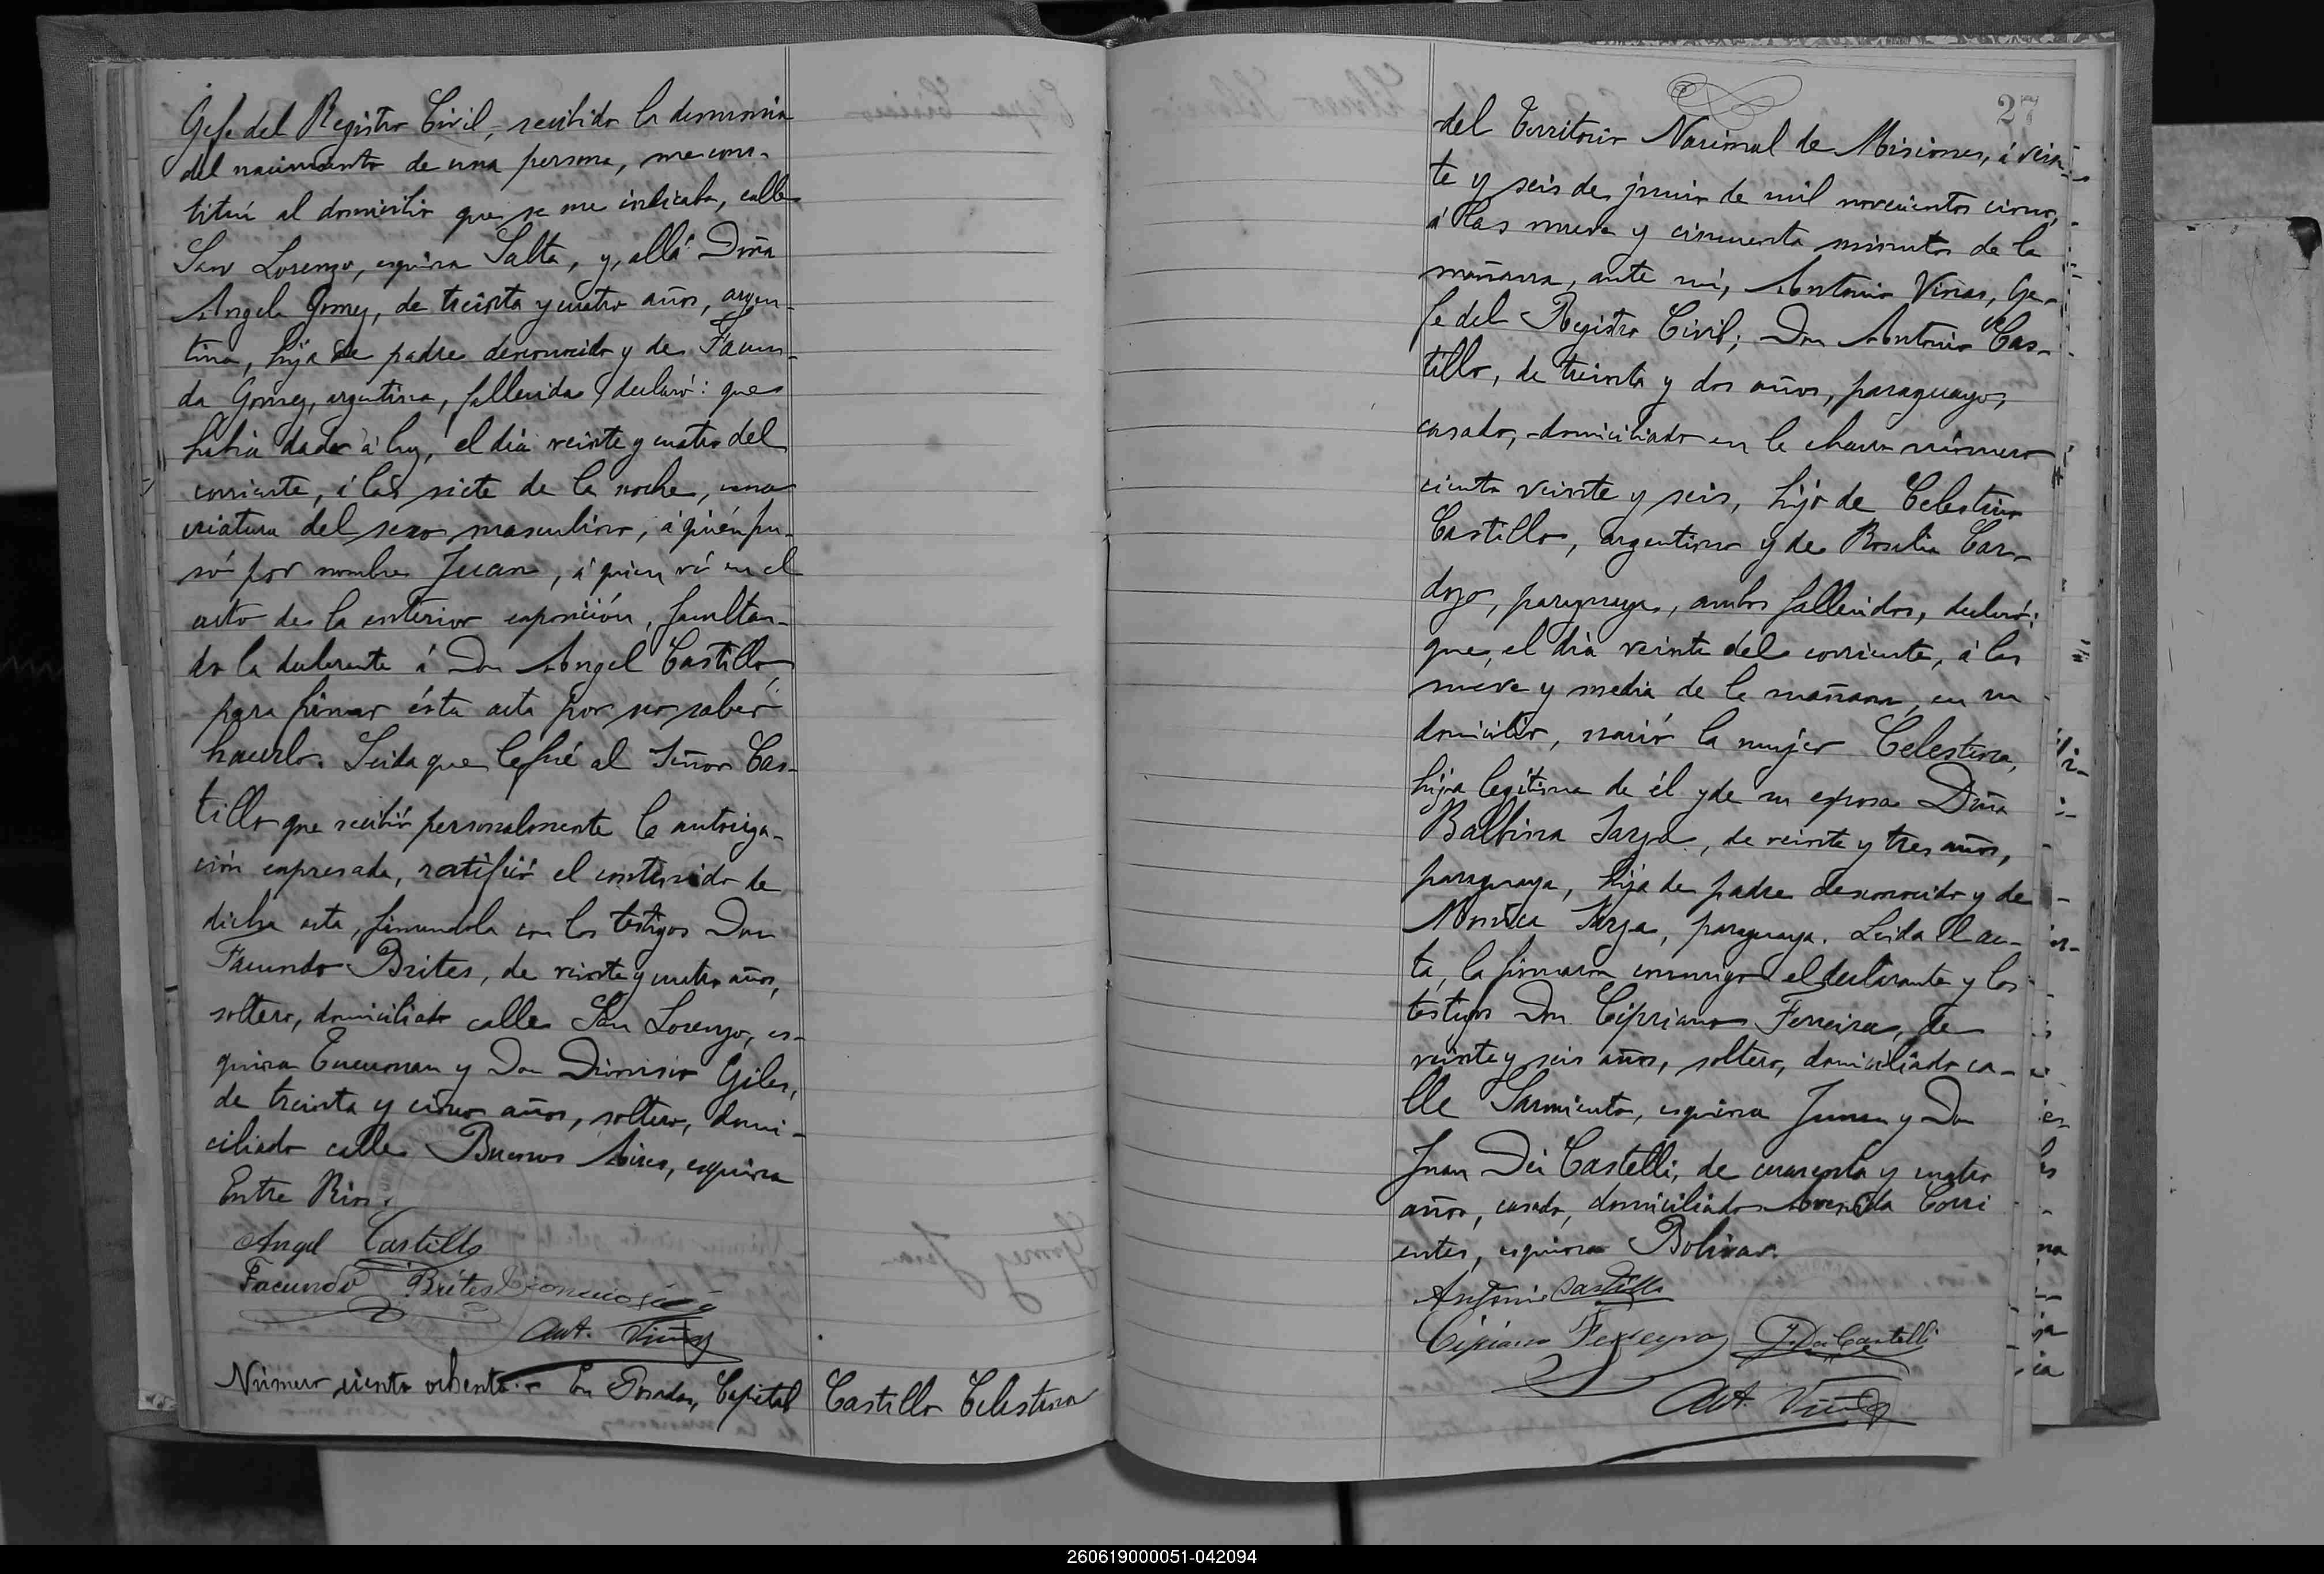 Gefe del Registro Civil, recibida la denuncia
del nacimiento de una persona, me cons-
tituí al domicilio que se me indicaba, calle
San Lorenzo, esquina Salta, y, allá Doña
Angela Gomez, de treinta y cuatro años, argen-
tina, hija de padre desconocido y de Facun-
da Gomez, argentina, fallecida, declaró: que
había dado á luz, el día veinte y cuatro del
corriente, á las siete de la noche, una
criatura del sexo masculino, á quién pu-
so por nombre Juan, á quien ví en el
acto de la anterior exposición, facultan-
do la declarante á Don Angel Castillo,
para firmar ésta acta por no saber
hacerlo. Leida que le fué al Señor Cas-
tillo que recibió personalmente la autoriza-
ción expresada, ratificó el contenido de
dicha acta, firmandola con los testigos Don
Facundo Brites, de veinte y cuatro años,
soltero, domiciliado calle San Lorenzo, es-
quina Tucuman y Don Dionisio Giles,
de treinta y cinco años, soltero, domi-
ciliado calle Buenos Aires, esquina
Entre Rios.
Angel Castillo
Facundo Brites
Ant. Viñas
Número ciento ochenta.- En Posadas, Capital
Castillo Celestina
27
del Territorio Nacional de Misiones, á vein-
te y seis de junio de mil novecientos cinco,
á las nueve y cincuenta minutos de la
mañana, ante mí, Antonio Viñas, Ge-
fe del Registro Civil; Don Antonio Cas-
tillo, de treinta y dos años, paraguayo,
casado, domiciliado en la chacra número
ciento veinte y seis, hijo de Celestino
Castillo, argentino y de Rosalia Car-
dozo, paraguaya, ambos fallecidos, declaró:
que, el día veinte del corriente, á las
nueve y media de la mañana, en su
domicilio, nació la mujer Celestina,
hija legítima de él y de su esposa Doña
Balbina Sarza, de veinte y tres años,
paraguaya, hija de padre desconocido y de
Mónica Sarza, paraguaya. Leida el ac-
ta, la firmaron conmigo el declarante y los
testigos Don Cipriano Ferreira, de
veinte y seis años, soltero, domiciliado ca-
lle Sarmiento, esquina Junin y Don
Juan Dei Castelli, de cuarenta y cuatro
años, casado, domiciliado Avenida Corri
entes, esquina Bolivar.
Antonio Castillo
Cipriano Ferreyra J. Dei Castelli
Ant. Viñas
260619000051-042094